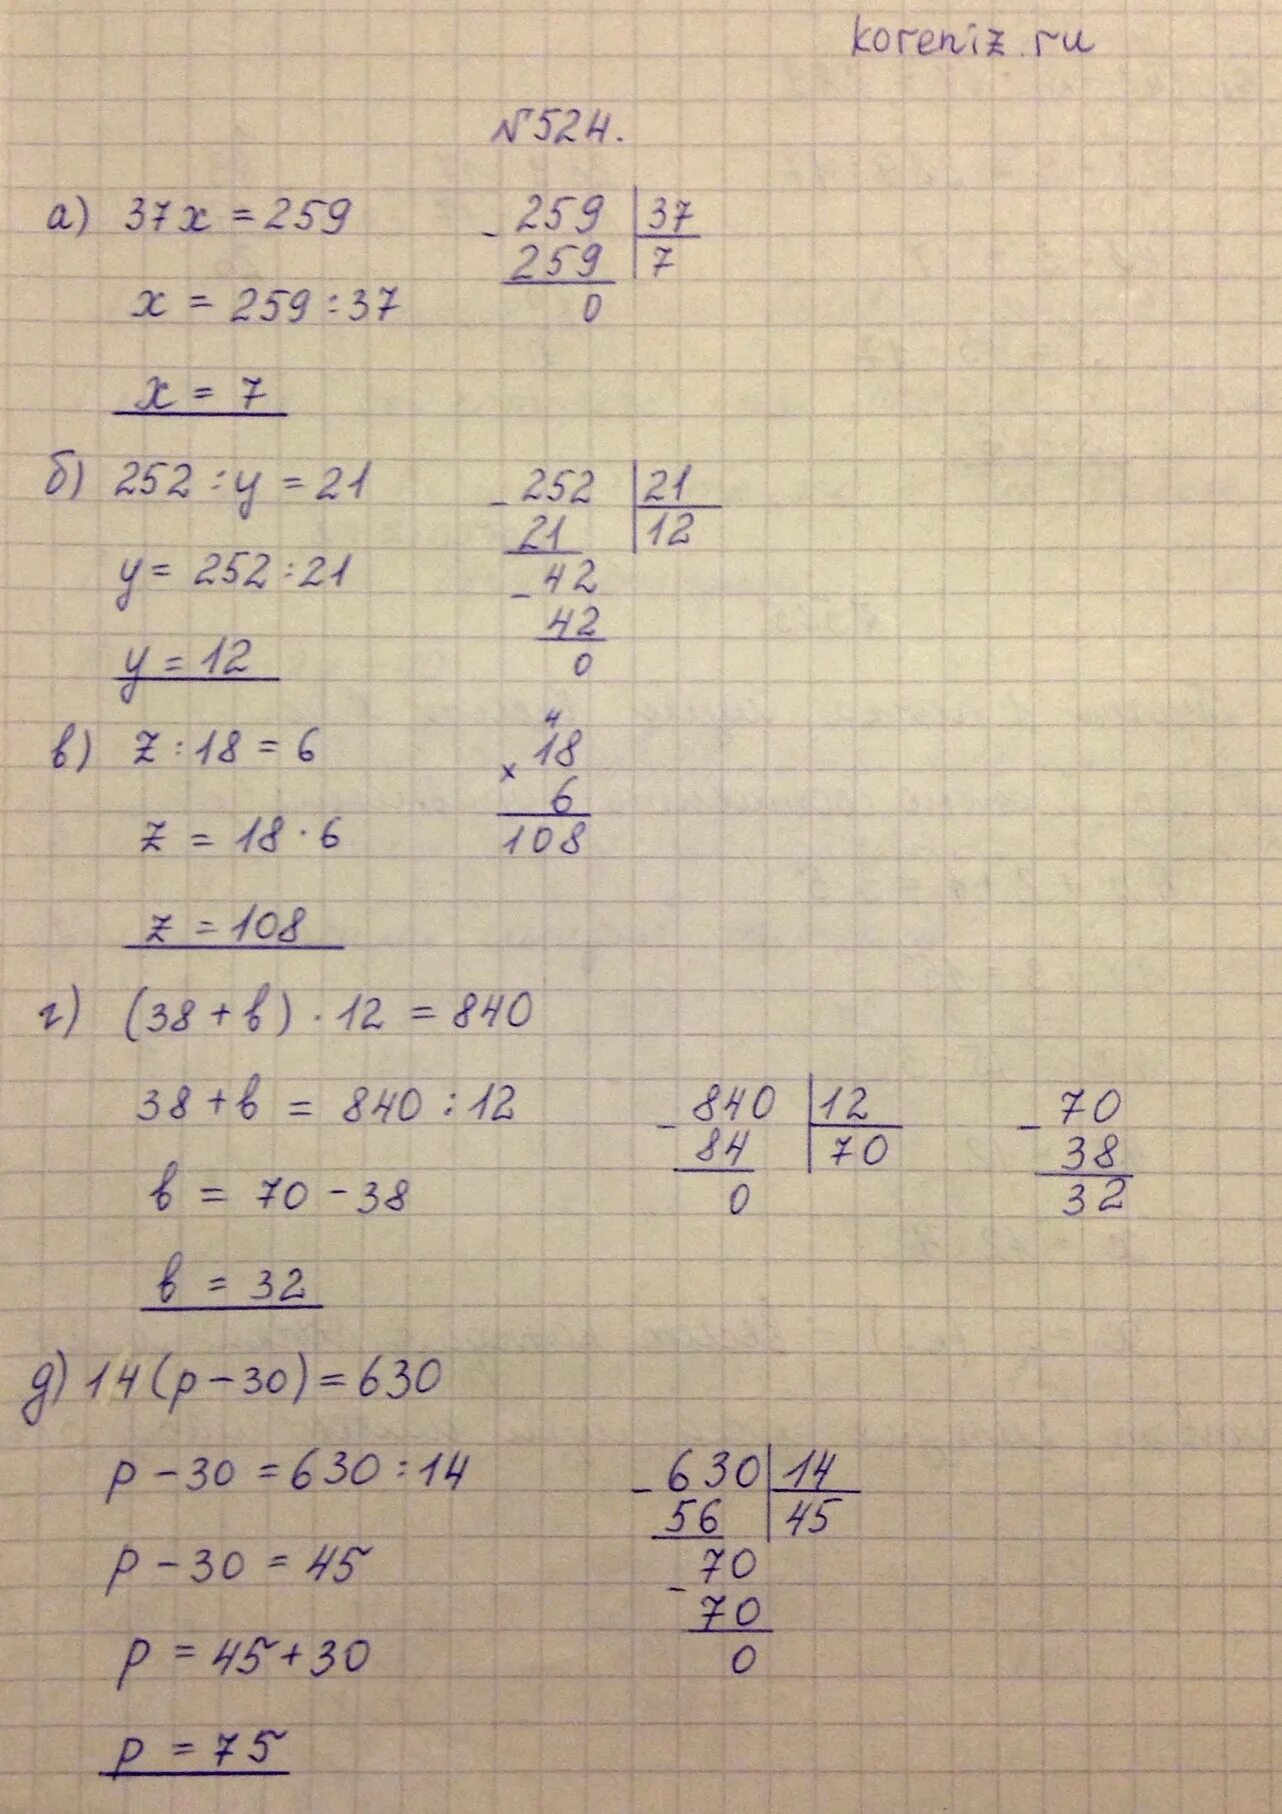 koreniz.ru
№524.
а) 37x = 259
x = 259 : 37
x = 7
- 259 | 37
259 | 7
0
б) 252 : y = 21
y = 252 : 21
y = 12
- 252 | 21
21 | 12
- 42
42
0
в) z : 18 = 6
z = 18 · 6
z = 108
4
× 18
6
108
г) (38 + b) · 12 = 840
38 + b = 840 : 12
b = 70 - 38
b = 32
- 840 | 12
84 | 70
0
- 70
38
32
д) 14 (p - 30) = 630
p - 30 = 630 : 14
p - 30 = 45
p = 45 + 30
p = 75
- 630 | 14
56 | 45
- 70
70
0